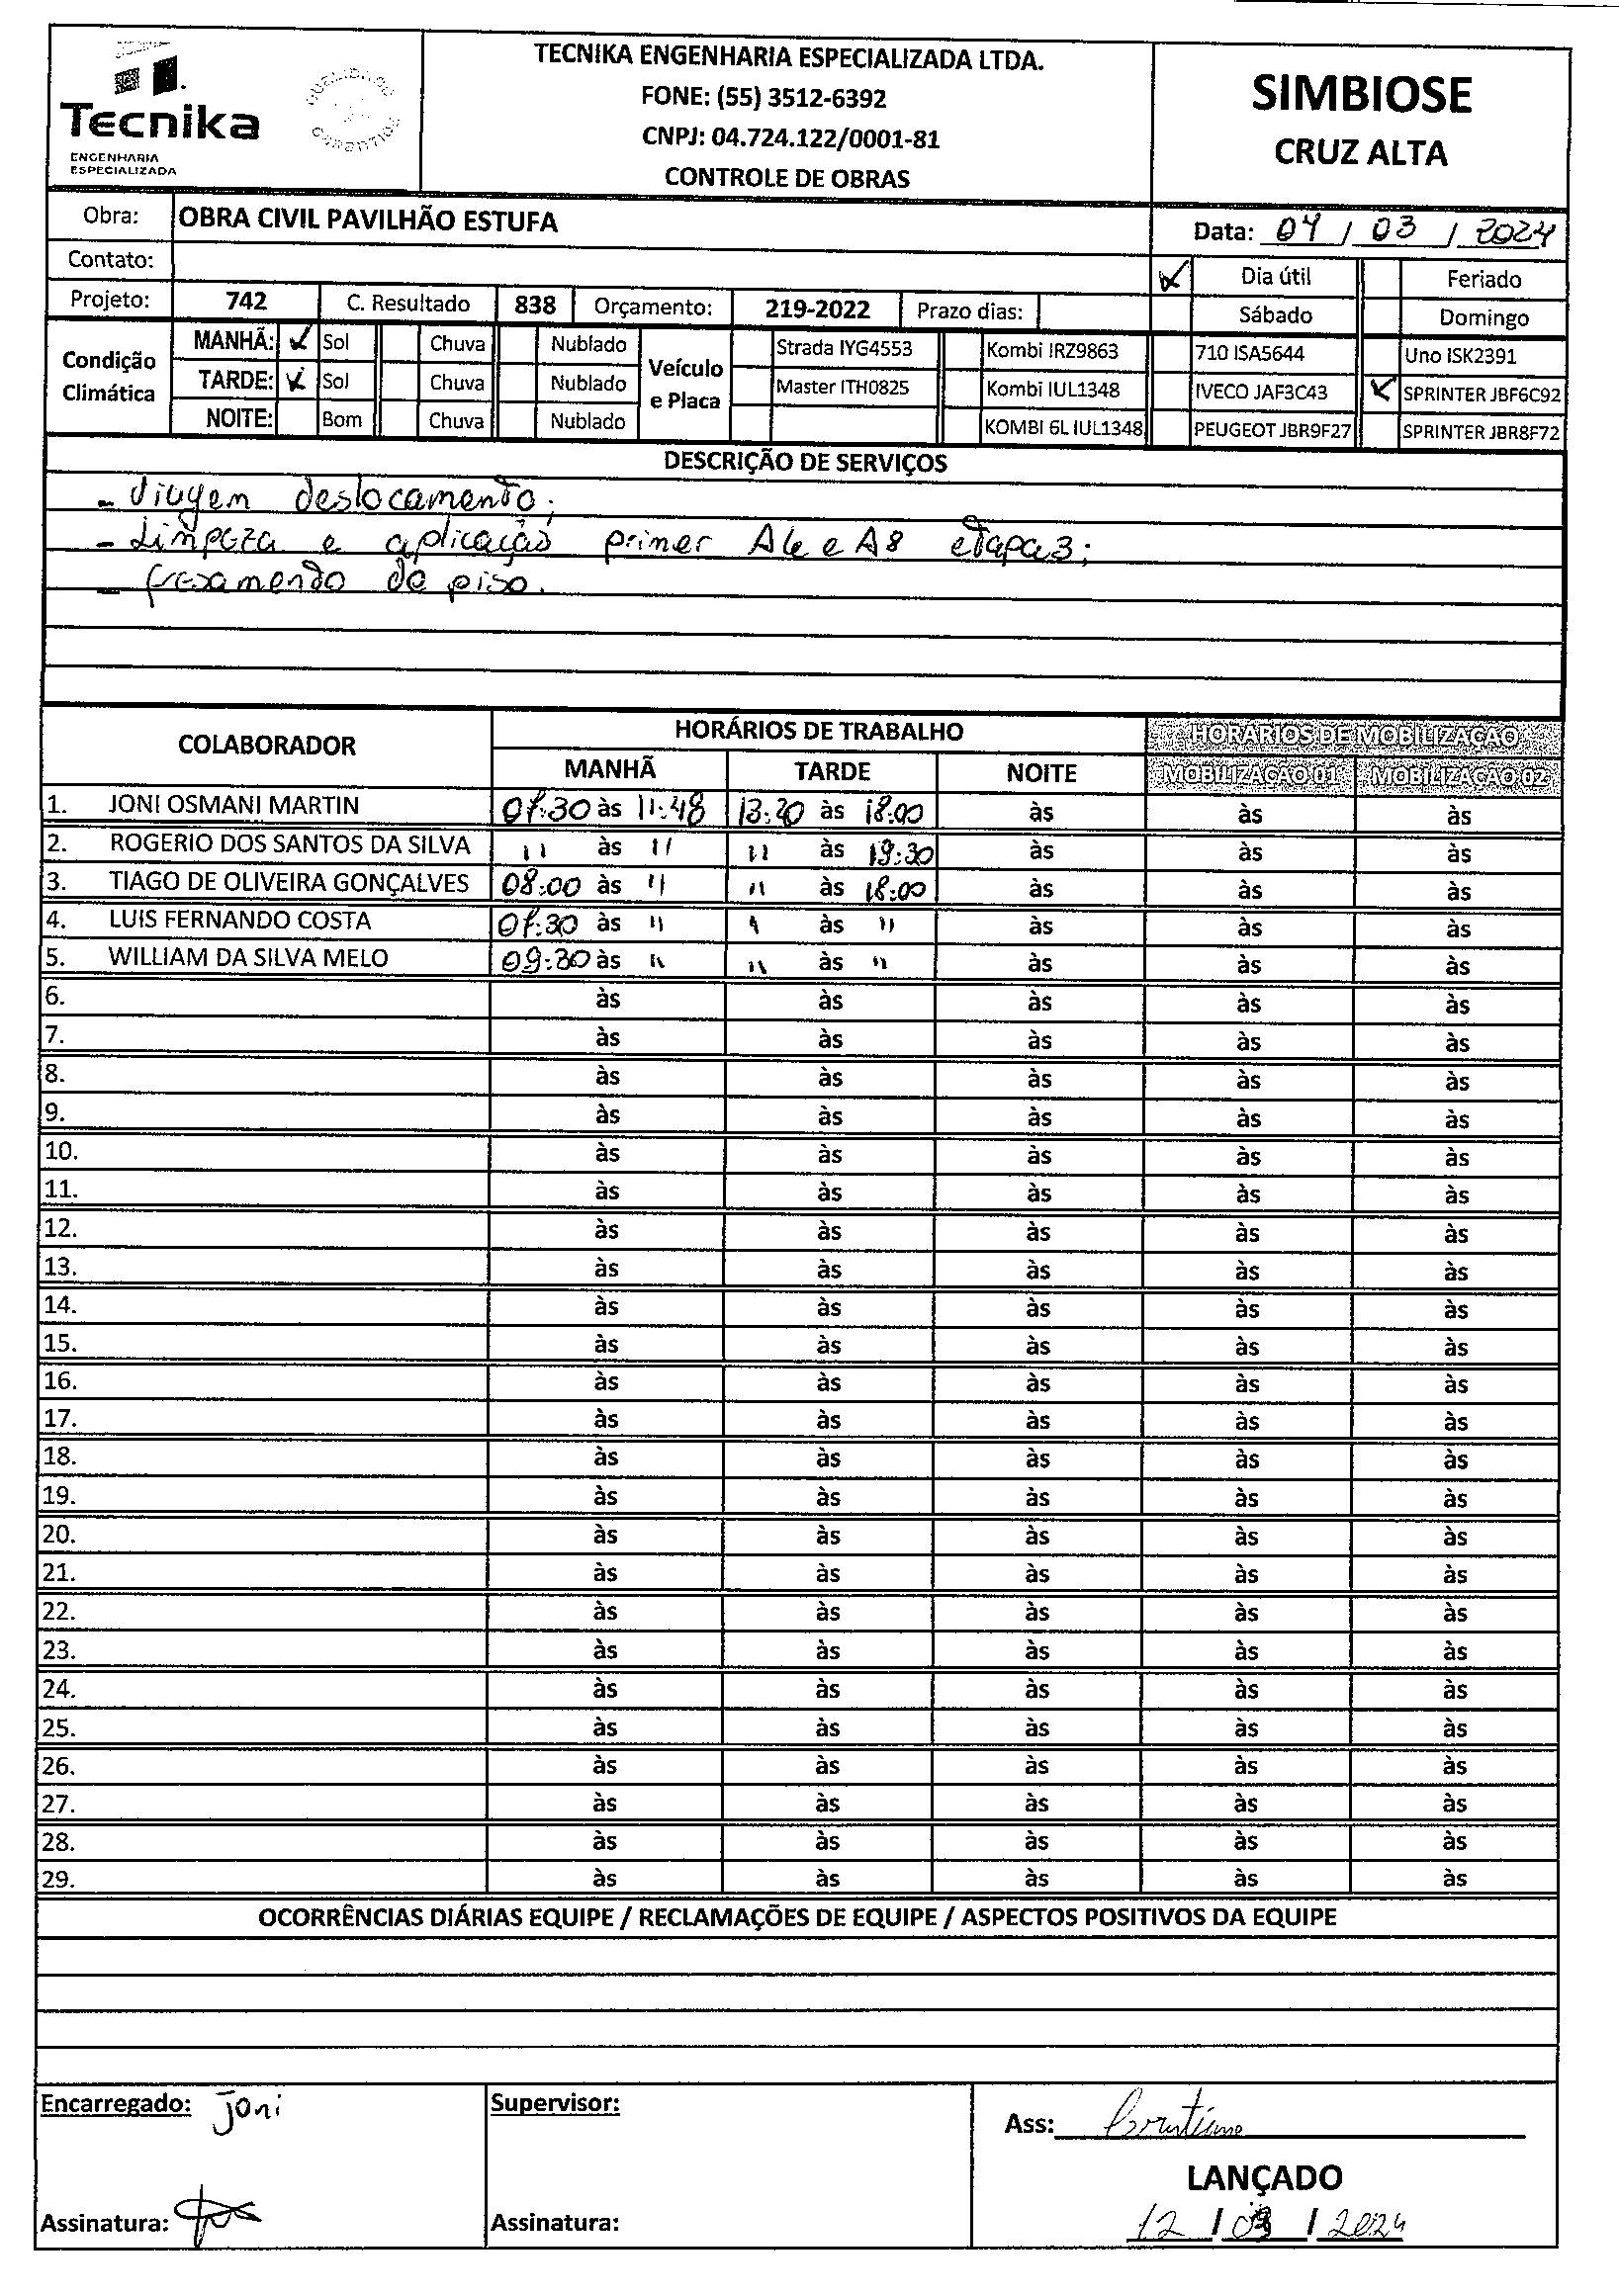 Tecnika
ENGENHARIA
ESPECIALIZADA
TECNIKA ENGENHARIA ESPECIALIZADA LTDA.
FONE: (55) 3512-6392
CNPJ: 04.724.122/0001-81
CONTROLE DE OBRAS
SIMBIOSE
CRUZ ALTA
Obra: OBRA CIVIL PAVILHÃO ESTUFA
Data: 04 / 03 / 2024
Contato:
✓ Dia útil Feriado
Projeto: 742 C. Resultado 838 Orçamento: 219-2022 Prazo dias:
Sábado Domingo
Condição Climática
MANHÃ: ✓ Sol Chuva Nublado
TARDE: ✓ Sol Chuva Nublado
NOITE: Bom Chuva Nublado
Veículo e Placa
Strada IYG4553 Kombi IRZ9863 710 ISA5644 Uno ISK2391
Master ITH0825 Kombi IUL1348 IVECO JAF3C43 ✓ SPRINTER JBF6C92
KOMBI 6L IUL1348 PEUGEOT JBR9F27 SPRINTER JBR8F72
DESCRIÇÃO DE SERVIÇOS
- Viagem deslocamento;
- Limpeza e aplicação primer A6 e A8 etapa3;
- fresamento de piso.
COLABORADOR HORÁRIOS DE TRABALHO HORÁRIOS DE MOBILIZAÇÃO
MANHÃ TARDE NOITE MOBILIZAÇÃO 01 MOBILIZAÇÃO 02
1. JONI OSMANI MARTIN 07:30 às 11:48 13:20 às 18:00 às às às
2. ROGERIO DOS SANTOS DA SILVA " às " " às 19:30 às às às
3. TIAGO DE OLIVEIRA GONÇALVES 08:00 às " " às 18:00 às às às
4. LUIS FERNANDO COSTA 07:30 às " " às " às às às
5. WILLIAM DA SILVA MELO 09:30 às " " às " às às às
6. às às às às às
7. às às às às às
8. às às às às às
9. às às às às às
10. às às às às às
11. às às às às às
12. às às às às às
13. às às às às às
14. às às às às às
15. às às às às às
16. às às às às às
17. às às às às às
18. às às às às às
19. às às às às às
20. às às às às às
21. às às às às às
22. às às às às às
23. às às às às às
24. às às às às às
25. às às às às às
26. às às às às às
27. às às às às às
28. às às às às às
29. às às às às às
OCORRÊNCIAS DIÁRIAS EQUIPE / RECLAMAÇÕES DE EQUIPE / ASPECTOS POSITIVOS DA EQUIPE
Encarregado: Joni
Supervisor:
Ass:
LANÇADO
Assinatura:
Assinatura:
12 / 03 / 2024